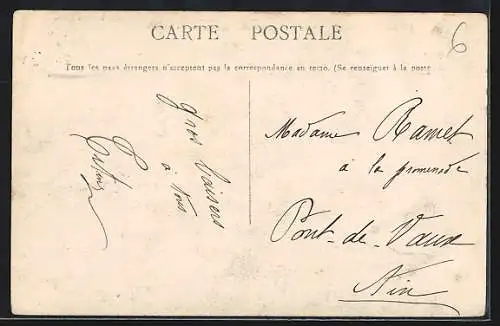 CARTE POSTALE
6
Tous les pays étrangers n'acceptent pas la correspondance au recto. (Se renseigner à la poste
gros baisers
à tous
Madame Ramet
à la promenade
Pont-de-Vaux
Ain